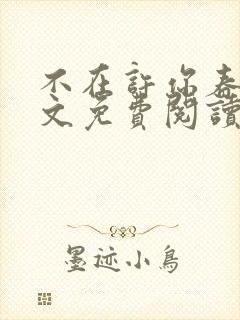 不在許你春
文免費閱讀
墨迹小鳥